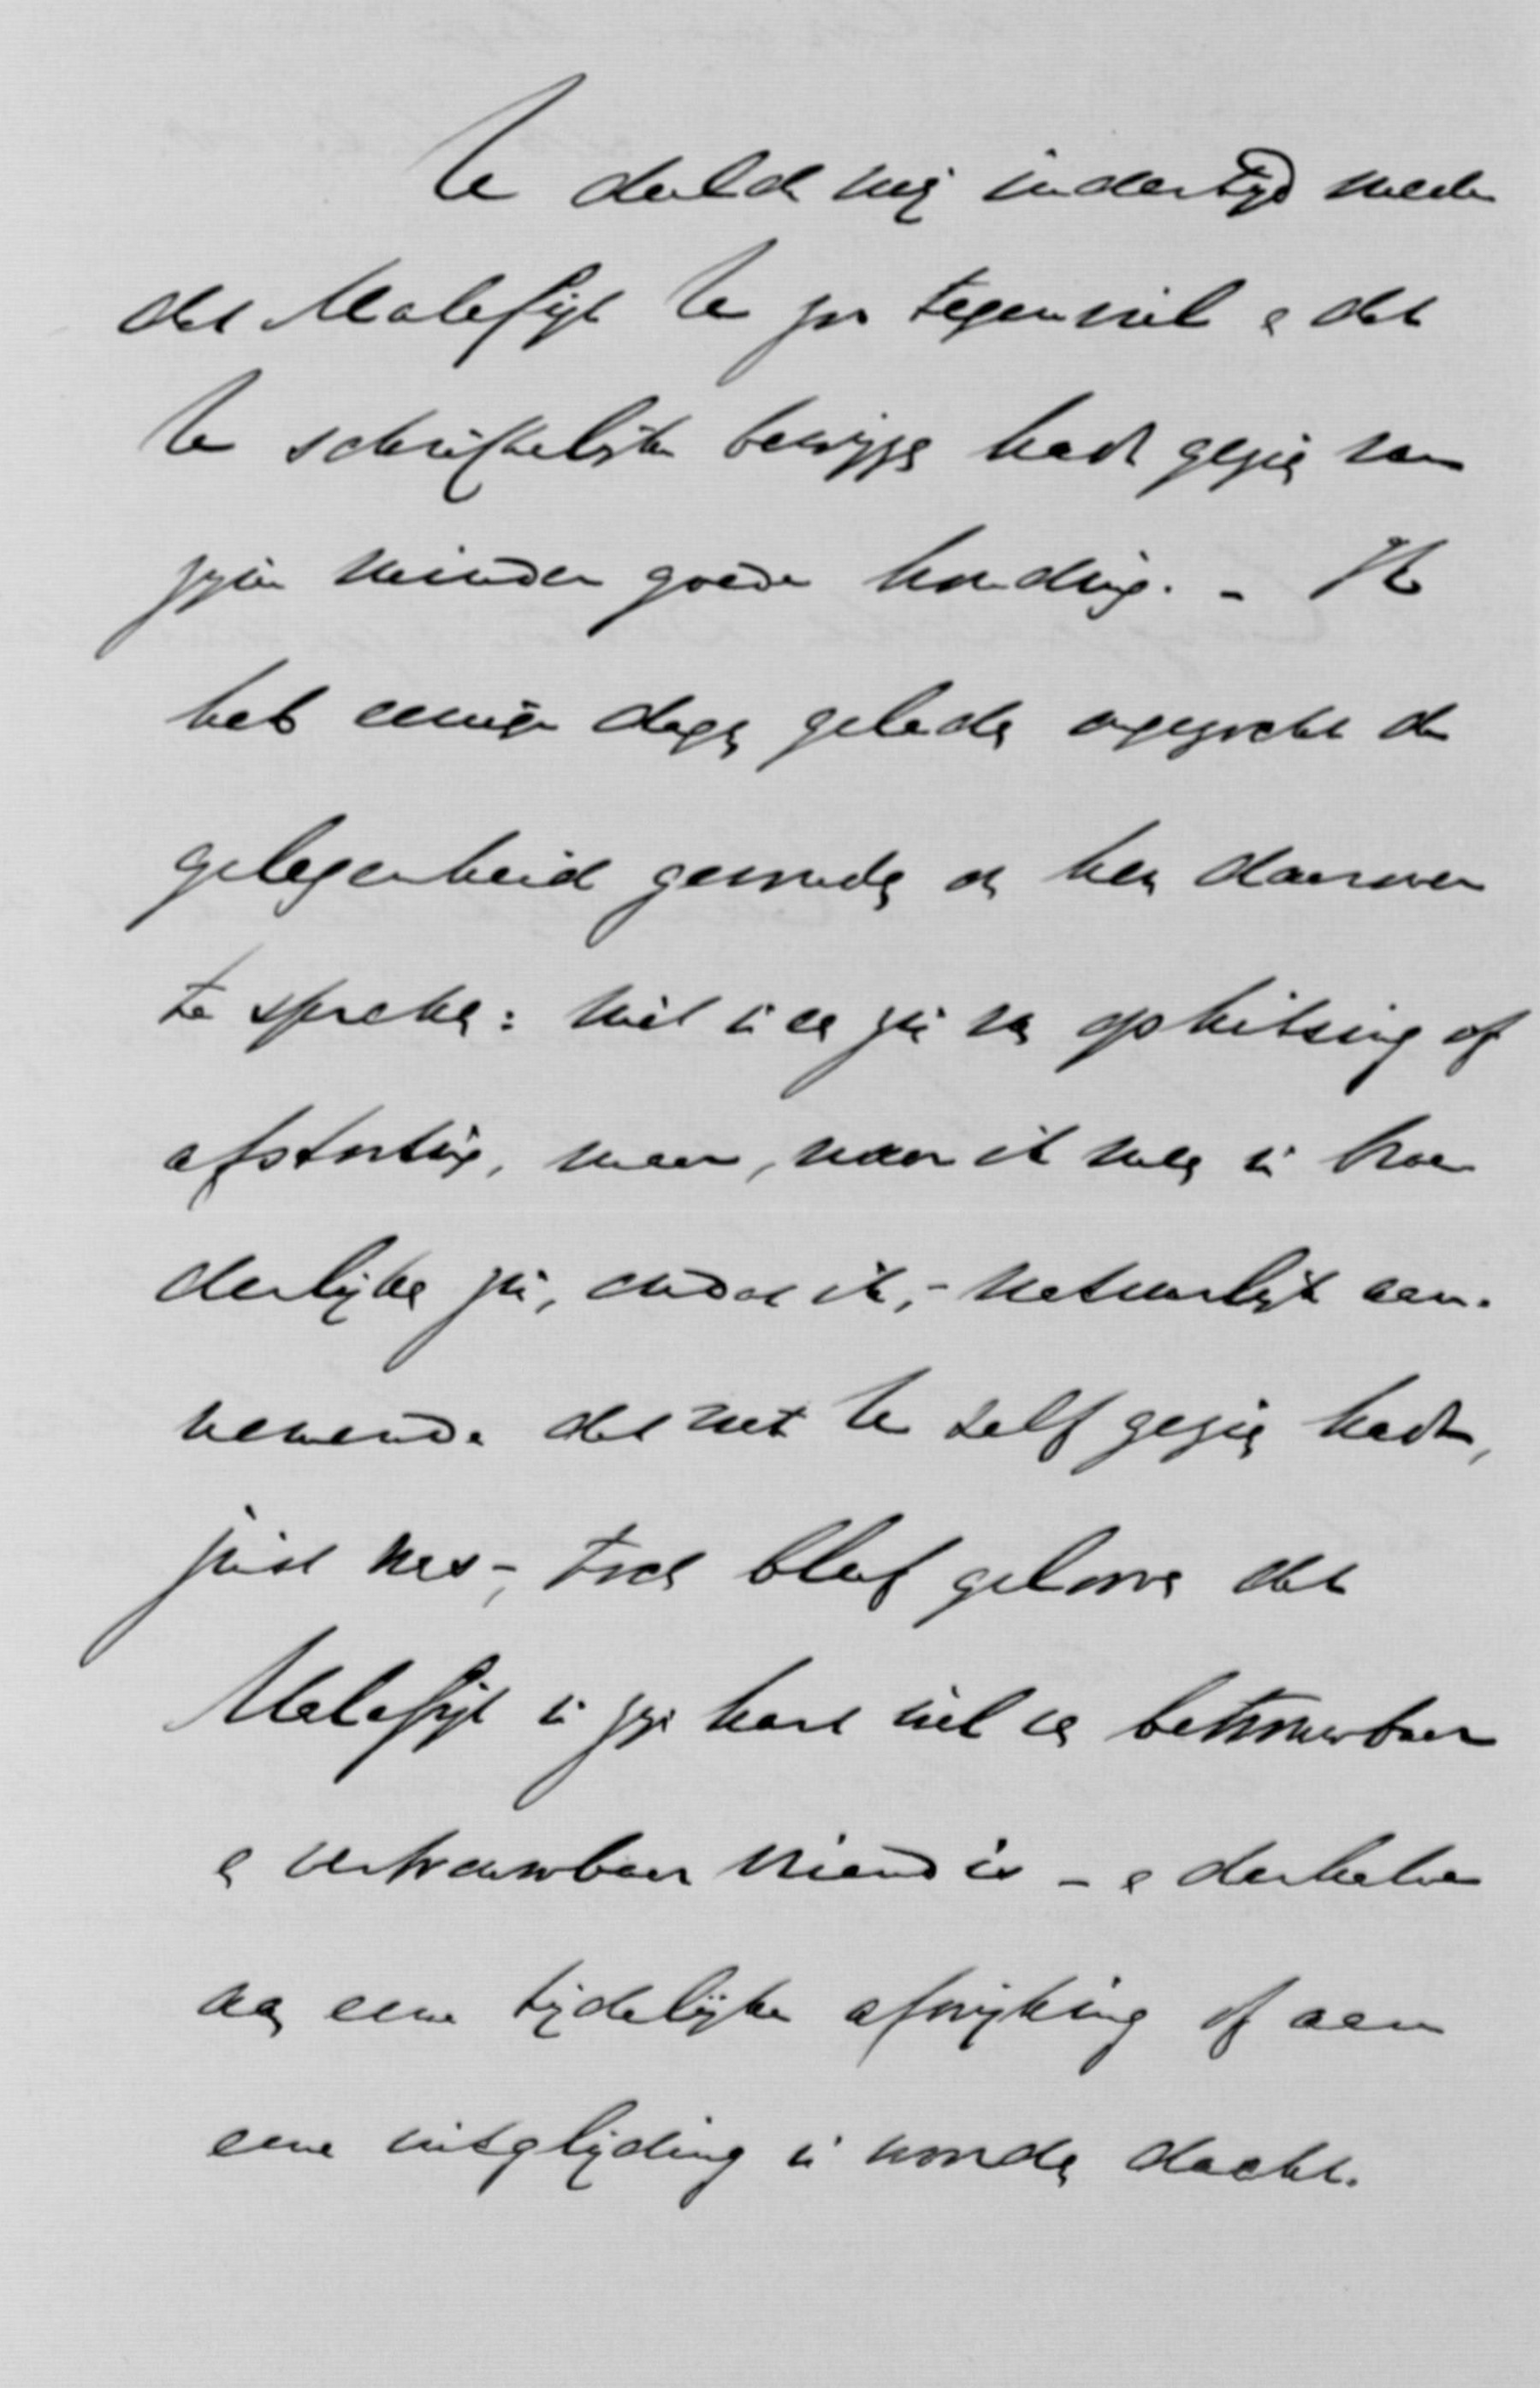 U deelde mij indertijd mede
dat Malefijt U zoo tegenviel & dat
U schriftelijke bewijzen hadt gezien van
zijn minder goede houding. - Ik
heb eenige dagen geleden ongezocht de
gelegenheid gevonden om hem daarover
te spreken: niet in een zin van ophitsing of
afstorting, maar, naar ik meen in broe
derlijken zin, omdat ik,- natuurlijk aan-
nemende dat wat U zelf gezien hadt,
juist was -, toch bleef gelooven dat
Malefijt in zijn hart niet een betrouwbaar
& vertrouwbaar vriend is - & derhalve
aan eene tijdelijke afwijking of aan
eene uitglijding in woorden dacht.